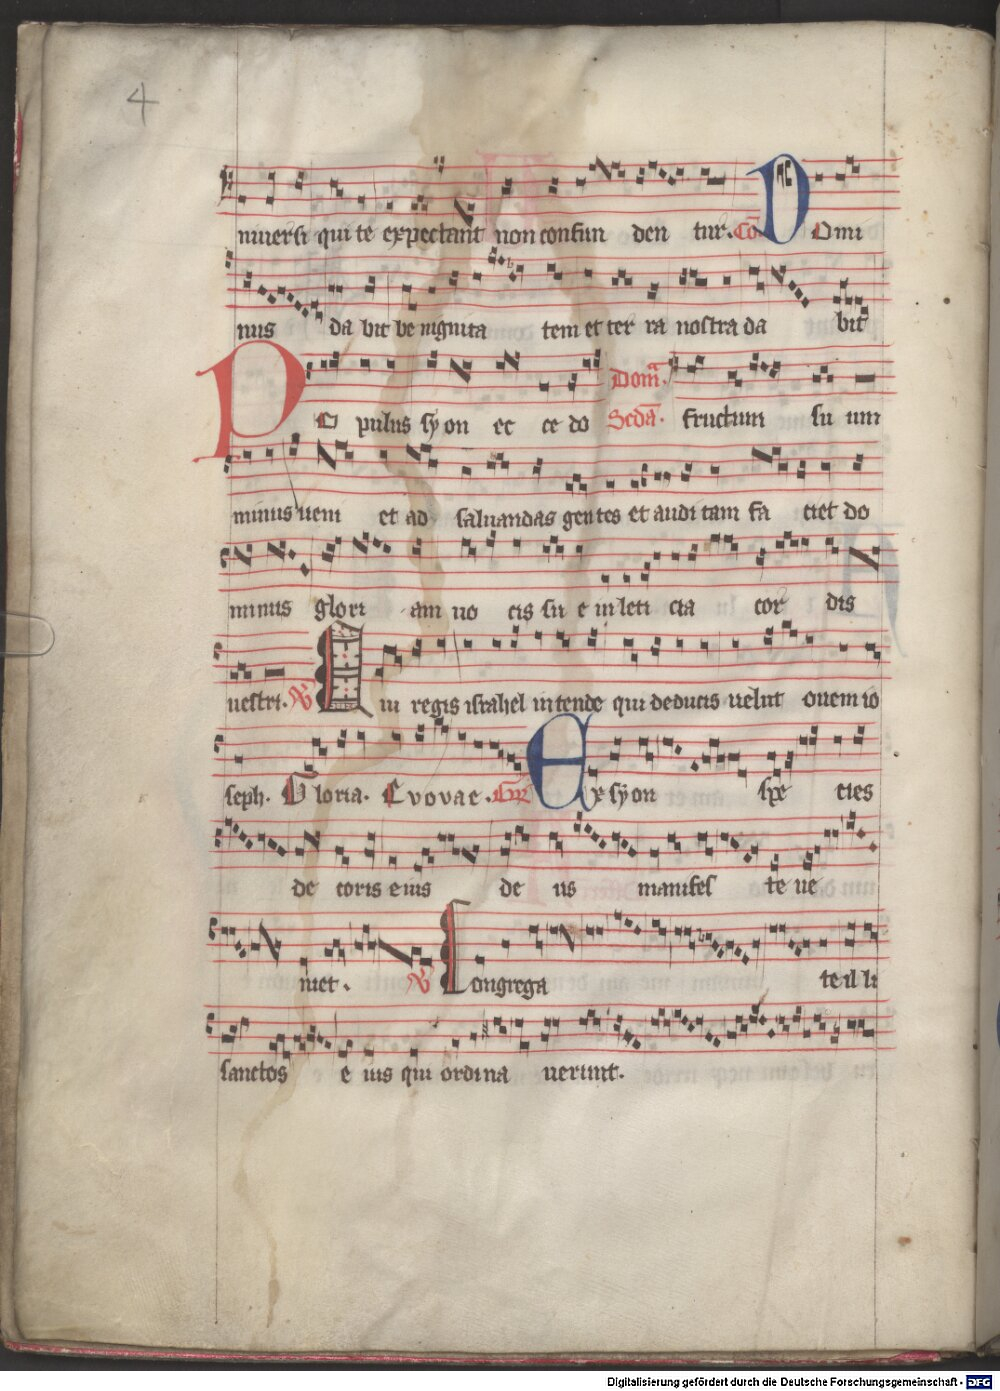 4
niuersi qui te expectant non confun den tur. Cō D Omi
nus da bit be nignita tem et ter ra nostra da bit
P O pulus syon ec ce do Domᷓ. Scda. fructum su um
minus ueni et ad saluandas gentes et audi tam fa ciet do
minus glori am uo cis su e in leti cia cor dis
uestri. Qui regis israhel intende qui deducis uelut ouem io
seph. Gloria. Evovae. Gr̄ Ex syon spe cies
de coris eius de us manifes te ue
niet. Congrega te il li
sanctos e ius qui ordina uerunt.
Digitalisierung gefördert durch die Deutsche Forschungsgemeinschaft - DFG